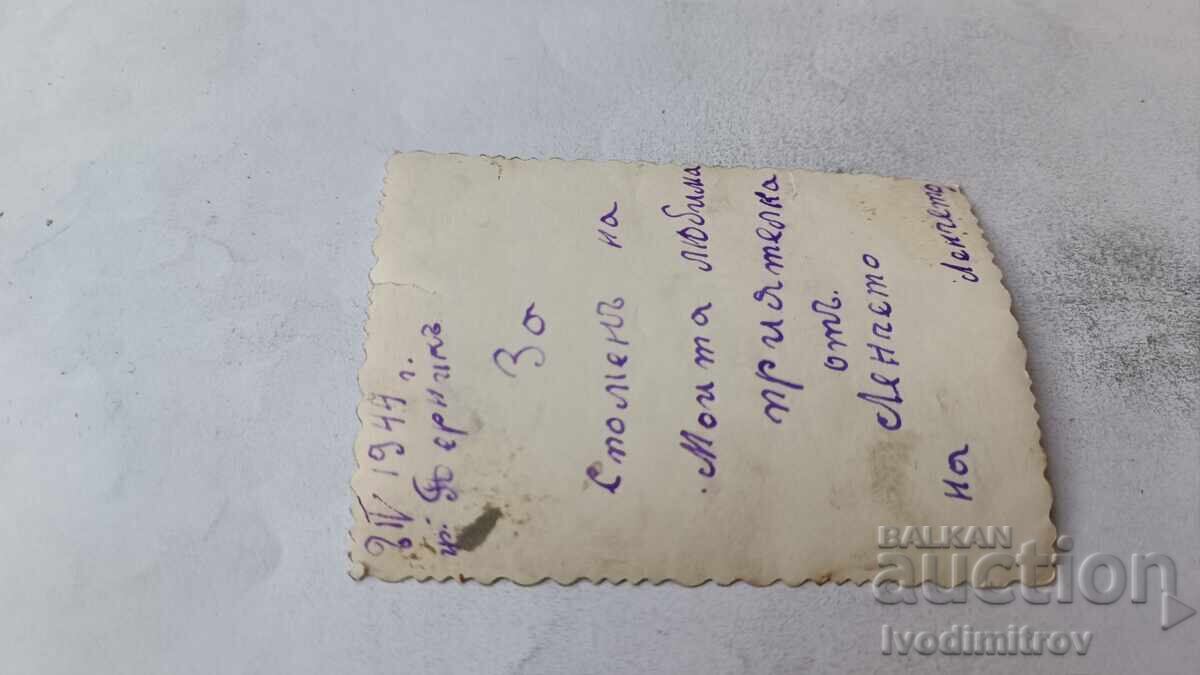 IV 1944 г.
гр. Перникъ
За
Споменъ на
Моита любима
приятелка
отъ.
Ленчето
на Ленчето
BALKAN
auction
Ivodimitrov